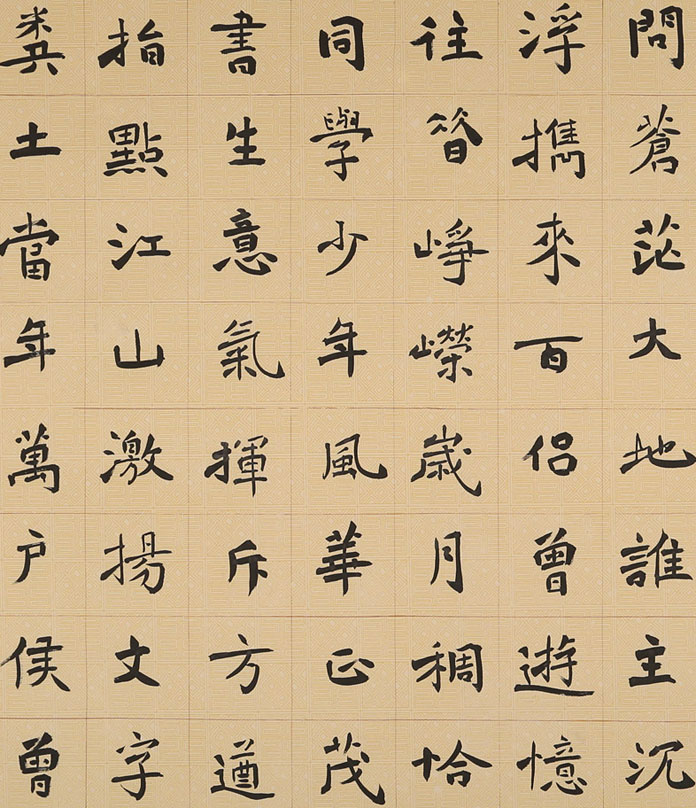 問蒼茫大地誰主沉
浮攜來百侶曾遊憶
往昔崢嶸歲月稠恰
同學少年風華正茂
書生意氣揮斥方遒
指點江山激揚文字
糞土當年萬户侯曾